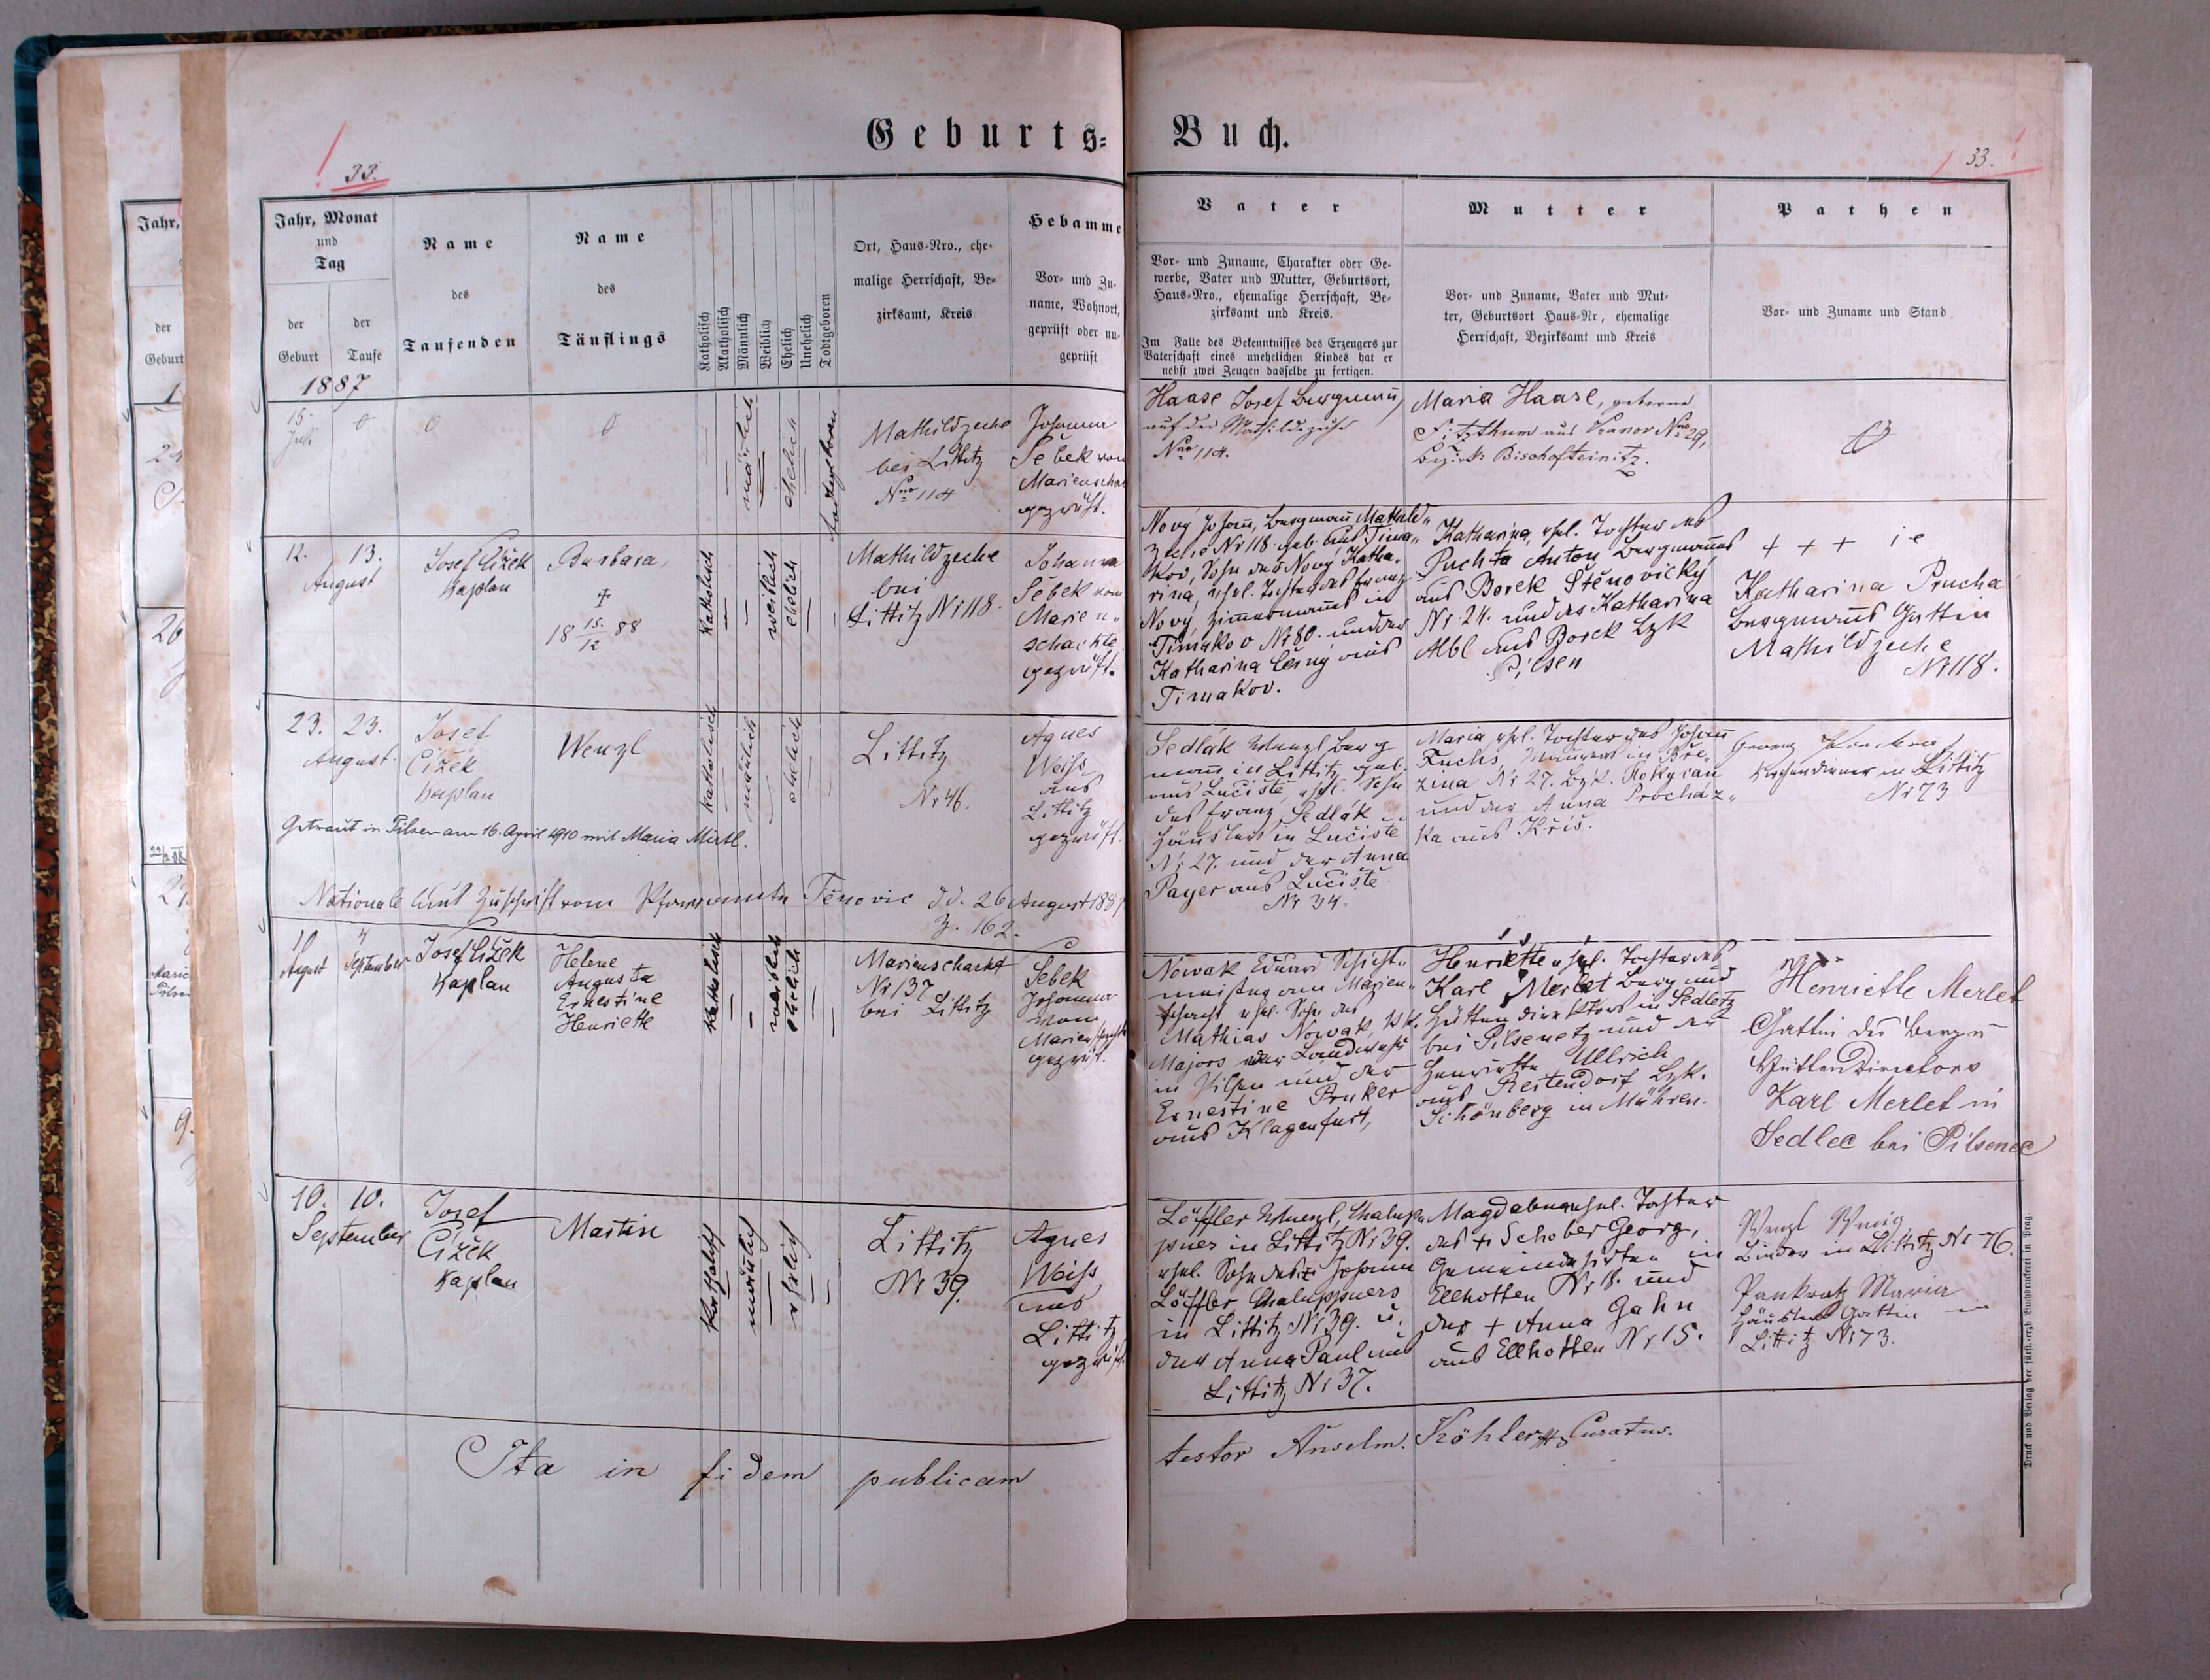 Geburts-Buch.
33.
33.
Jahr, Monat
und
Tag
der
Geburt
der
Taufe
Name
des
Taufenden
Name
des
Täuflings
Katholisch
Akatholisch
Männlich
Weiblich
Ehelich
Unehelich
Todtgeboren
Ort, Haus-Nro., ehe-
malige Herrschaft, Be-
zirksamt, Kreis
Hebamme
Vor- und Zu-
name, Wohnort,
geprüft oder un-
geprüft
Vater
Vor- und Zuname, Charakter oder Ge-
werbe, Vater und Mutter, Geburtsort,
Haus-Nro., ehemalige Herrschaft, Be-
zirksamt und Kreis.
Im Falle des Bekenntnisses des Erzeugers zur
Vaterschaft eines unehelichen Kindes hat er
nebst zwei Zeugen dasselbe zu fertigen.
Mutter
Vor- und Zuname, Vater und Mut-
ter, Geburtsort Haus-Nr, ehemalige
Herrschaft, Bezirksamt und Kreis
Pathen
Vor- und Zuname und Stand
1887
15.
Juli
ehelich
Mathildzeche
bei Littitz
Nro 114
Johanna
Šebek vom
Marienscha
geprüft.
Haase Josef Bergmann
auf der Mathildezeche
Nro 114.
Maria Haase, geborne
Fitzthum aus Nro 29,
Bezirk Bischofteinitz.
12. 13.
August
Josef Čížek
Kaplan
Barbara,
†
18 15./12 88
Katholisch
weiblich
ehelich
Mathildzeche
bei
Littitz Nr 118.
Johanna
Šebek vom
Marien-
schachte
geprüft.
Nový Johann, Bergmann Mathild-
zeche Nr 118. geb. aus Tima-
kov, Sohn des Nový Katha-
rina, ehel. Tochter des Franz
Nový, Zimmermanns in
Timakov Nr 80. und der
Katharina Černý aus
Timakov.
Katharina, ehel. Tochter des
Puchta Anton Bergmannes
aus Borek Štěnovický
Nr. 24. und der Katharina
Albl aus Borek Bzk
Pilsen
+ + +
Katharina Prucha
Bergmanns Gattin
Mathildzeche
Nr 118.
23. 23.
August.
Josef
Čížek
Kaplan
Wenzl
Katholisch
männlich
ehelich
Littitz
Nr 46.
Agnes
Weiss
aus
Littitz
geprüft.
Sedlák Wenzl Berg
mann in Littitz, geb.
aus Lučiště, ehel. Sohn
des Franz Sedlák
Häuslers in Lučiště
Nr 27. und der Anna
Payer aus Lučiště
Nr 34.
Maria ehel. Tochter des Johann
Fuchs, Maurers in Bře-
zina Nr 27. Bzk. Rokycan
und der Anna Procház-
ka aus Kříš.
Georg
Kirchendiener in Littitz
Nr 73
Getraut in Pilsen am 16. April 1910 mit Maria Mirtl.
Nationale laut Zuschrift vom Pfarramte Těnovic d.d. 26 August 1887
Z. 162.
10 4
August September
Josef Čížek
Kaplan
Helene
Augusta
Ernestine
Henriette
Katholisch
weiblich
ehelich
Marienschacht
Nr 137
bei Littitz
Šebek
Johanna
vom
Marienschacht
geprüft.
Nowak Eduard Schicht-
meister am Marien-
schacht ehel. Sohn des
Mathias Nowak, k.k.
Majors der Landwehr
in Pilsen und der
Ernestine Pruker
aus Klagenfurt,
Henriette ehel. Tochter des
Karl Merlet Berg und
Hütten direktors in Sedletz
bei Pilsenetz und der
Henriette Ullrich
aus Reitendorf Bzk.
Schönberg in Mähren.
Henriette Merlet
Gattin des Berg u
Hütten Directors
Karl Merlet in
Sedlec bei Pilsenec
10. 10.
September
Josef
Čížek
Kaplan
Martin
Katholisch
männlich
ehelich
Littitz
Nr 39.
Agnes
Weiss
aus
Littitz
geprüft.
Löffler Wenzl, Chalup-
pner in Littitz Nr 39.
ehel. Sohn des + Johann
Löffler Chaluppners
in Littitz Nr 39. u.
der Anna Paul aus
Littitz Nr 37.
Magdalena ehel. Tochter
des + Schober Georg,
Gemeindehirten in
Ellhotten Nr 18. und
der + Anna Gahn
aus Ellhotten Nr 15.
Wenzl
Binder in Littitz Nr 76.
Pankratz Maria
Häuslers Gattin in
Littitz Nr 73.
Ita in fidem publicam
testor Anselm. Köhler Curatus.
Druck und Verlag der fürst.-erzb. Buchdruckerei in Prag.